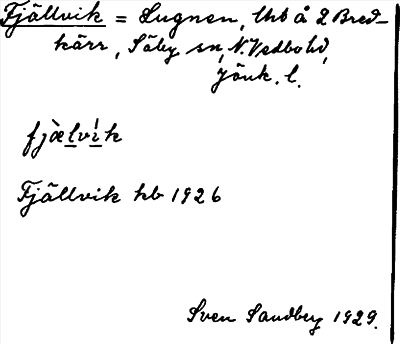 Fjällvik = Lugnen, lht å 2 Bred-
kärr, Säby sn, N. Vedbo hd,
Jönk. l.
fjæ̀lvìk
Fjällvik kb 1926
Sven Sandberg 1929.